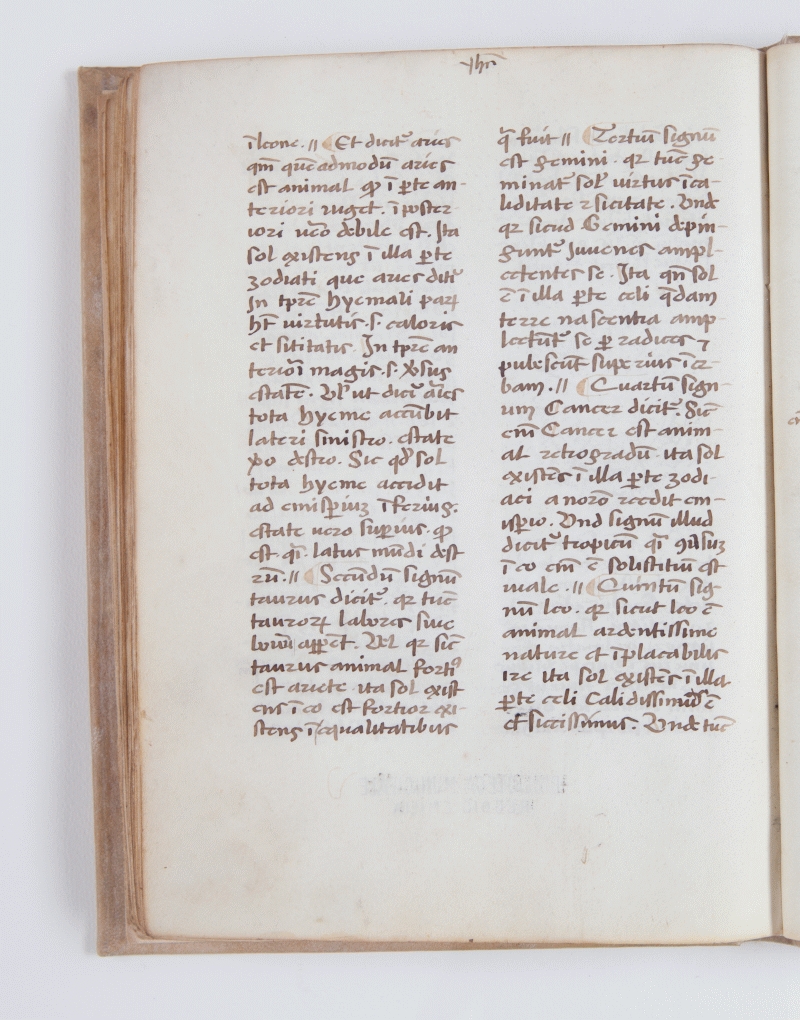 yhus
ī leone. // Et dicit᷑ aries
qm̄ quēadmodū aries
est animal qđ ī ꝑte an-
teriori viget. ī poster-
iori ūo debile est. Ita
sol existens ī illa ꝑte
zodiati que aries dicit᷑
In tp̄re hyemali parū
hꝫ virtutis .s. caloris
et sititatis. In tp̄re an
teriōi magis .s. v̓sus
estatē. Vl̓ ut dicūt aries
tota hyeme accūbit
lateri sinistro. estate
v̓o destro. Sic qđ sol
tota hyeme accidit
ad emisꝑiuꝫ īferius.
estate vero suꝑius. qđ
est q̄i. latus mūdi dest
rū. // Secūdū signū
taurus dicit᷑. qꝛ tūc
tauroꝝ labores sive
boum apꝑēt. Vel qꝛ sic̄
taurus animal fortiꝰ
est ariete ita sol exist
ens ī eo est fortior exi-
stens ī equalitatibus
q̄ fuit // Tertiū signū
est gemini. qꝛ tūc ge-
minat᷑ sol̓ virtus ī ca-
liditate ⁊ sicitate. Vnde
qꝛ sicud Gemini depin-
gunt᷑ Juvenes ampl-
ectentes se. Ita qn̄ sol
ē ī illa ꝑte celi q̄dam
terre nascentia amp-
lectūt᷑ se ꝑ radices ⁊
pubescūt superius ī er-
bam. // Quartū sign-
um Cancer dicit᷑. Sic̄
em̄ Cancer est anim-
al retrogradū ita sol
existēs ī illa ꝑte zodi-
aci a noƀ recedit em-
isꝑio. Vnd signū illud
dicit᷑ tropicū q̄i ꝯv̓siuꝫ
ī eo em̄ ē solistitiū est
ivale. // Quintū sig-
nū leo. qꝛ sicut leo ē
animal ardentissime
nature et īplacabilis
ire ita sol existēs ī illa
ꝑte celi Calidissimus ē
et siccissimus. Vnde tūc